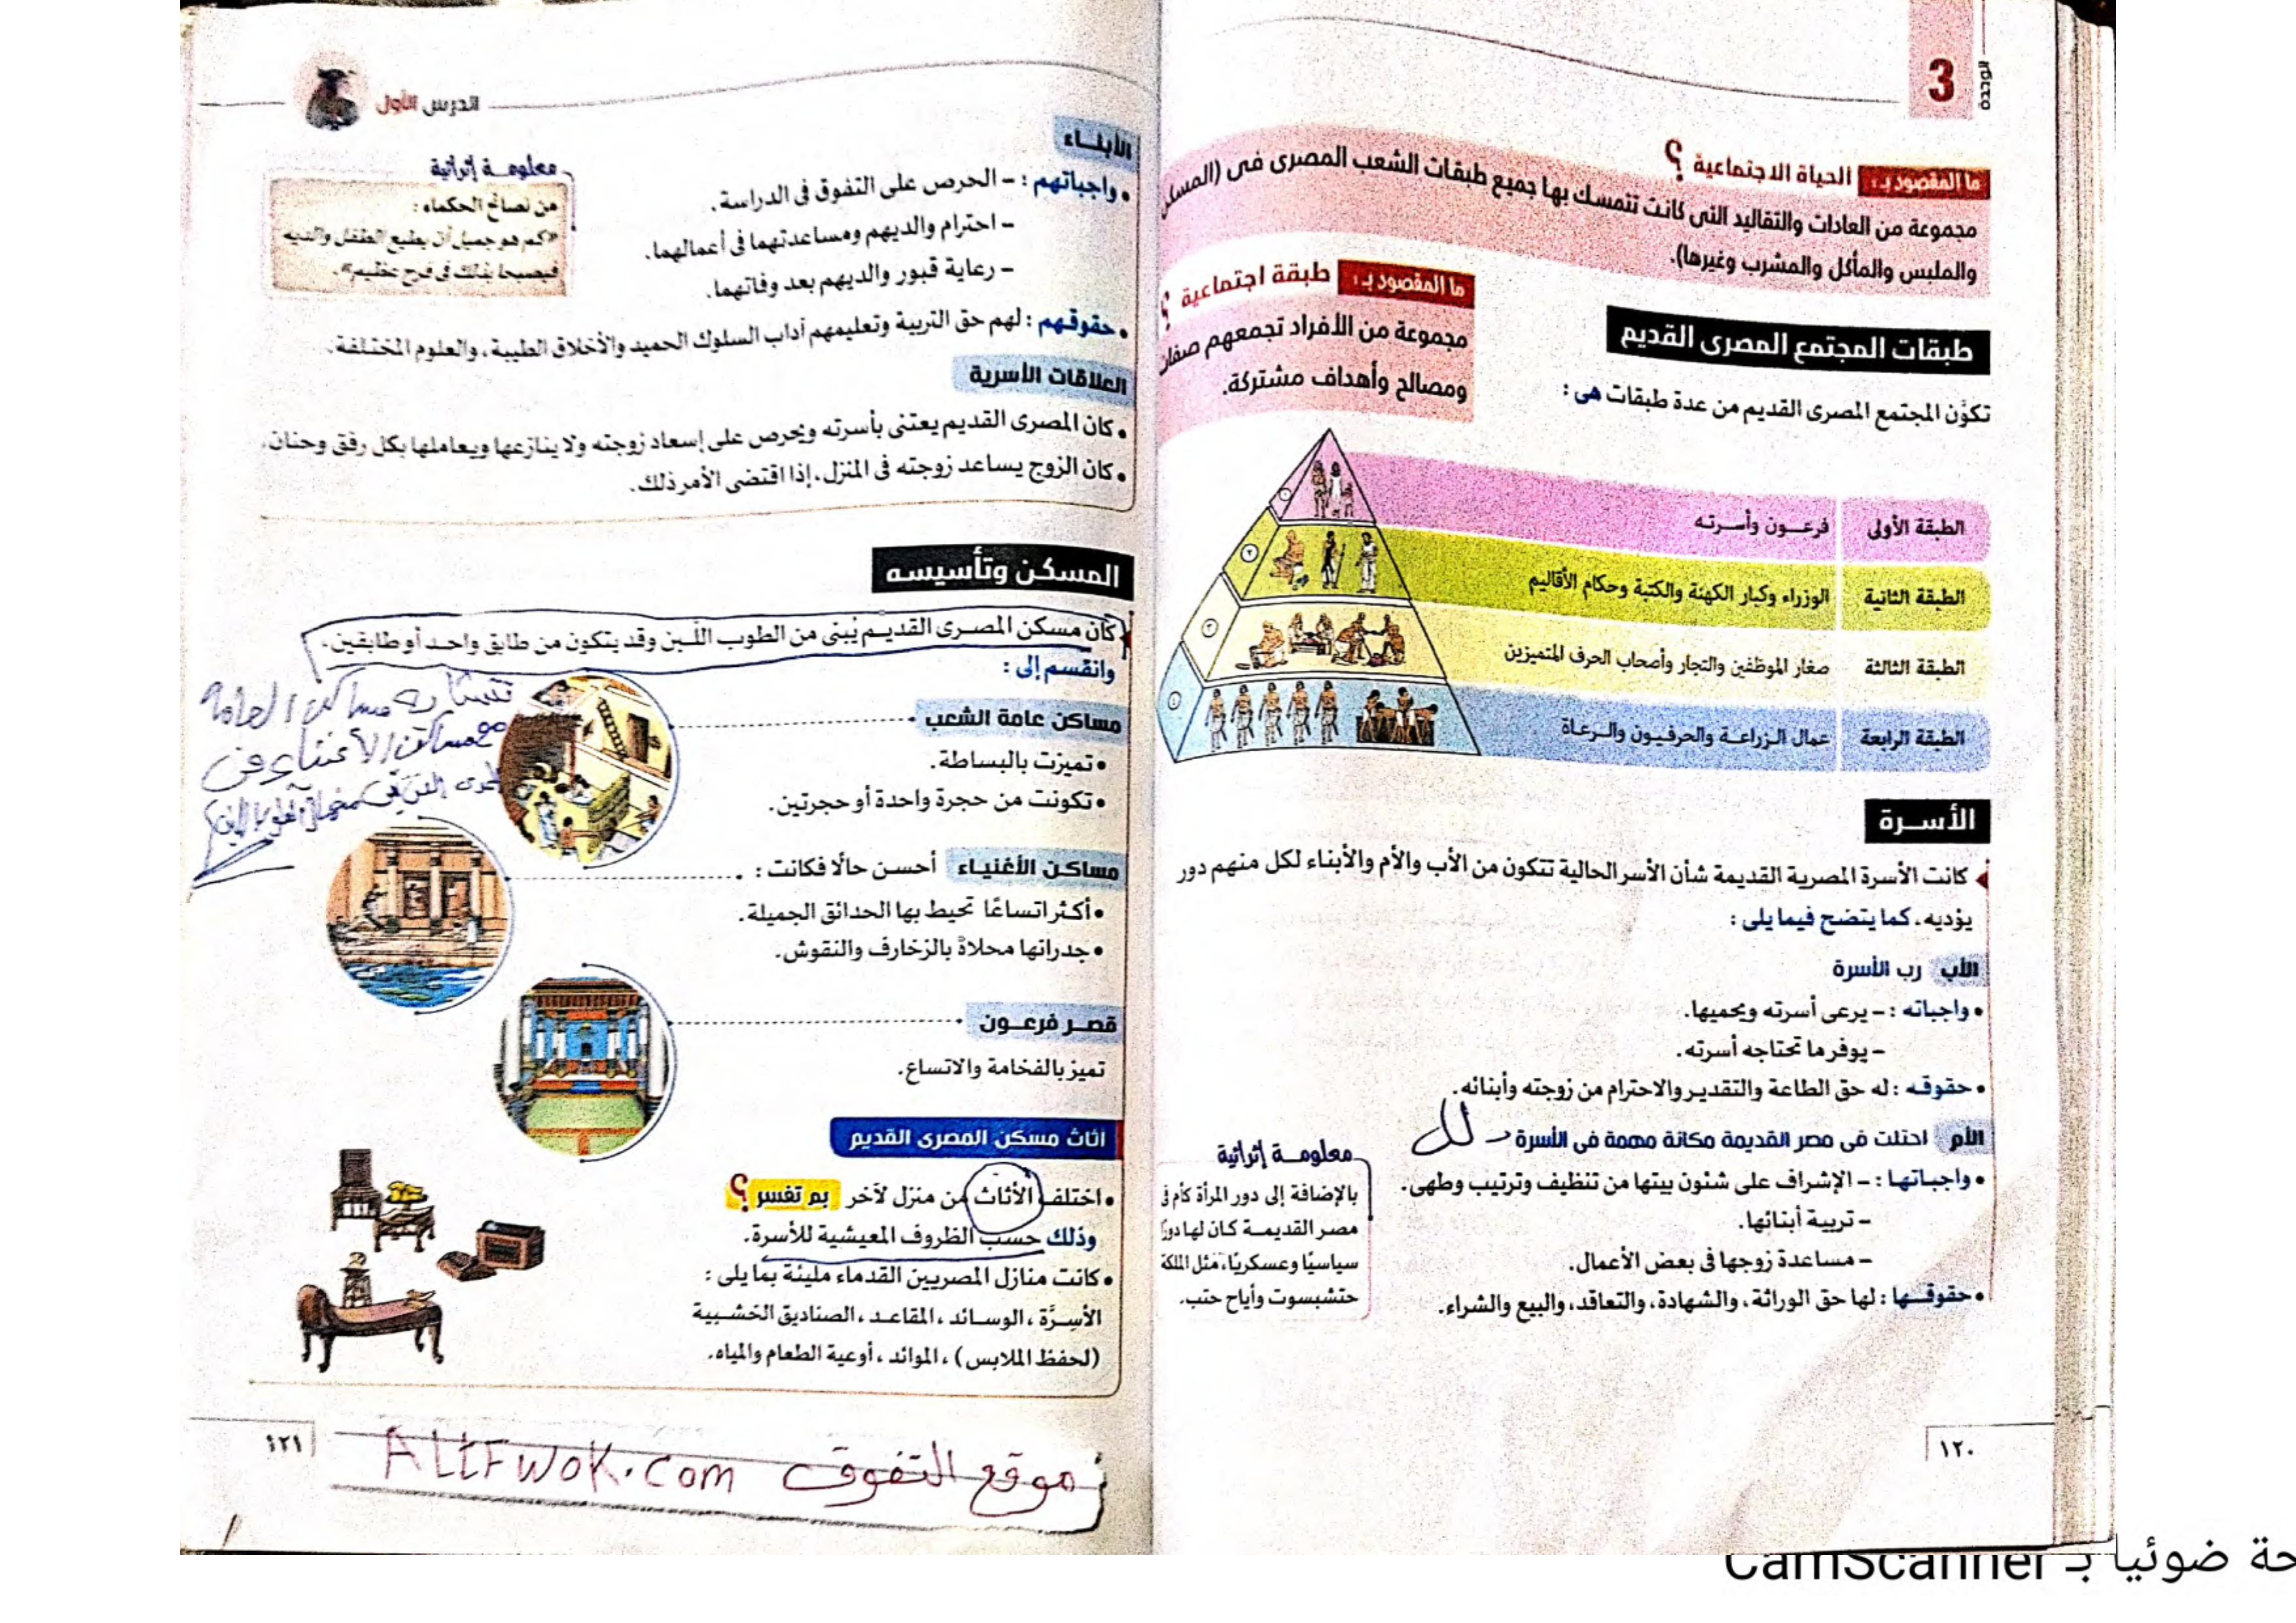 الوحدة
3
ما المقصود بـ: الحياة الاجتماعية ؟
مجموعة من العادات والتقاليد التى كانت تتمسك بها جميع طبقات الشعب المصرى فى (المسكن
والملبس والمأكل والمشرب وغيرها).
طبقات المجتمع المصرى القديم
تكوَّن المجتمع المصرى القديم من عدة طبقات هى :
ما المقصود بـ: طبقة اجتماعية ؟
مجموعة من الأفراد تجمعهم صفات
ومصالح وأهداف مشتركة.
الطبقة الأولى فرعـون وأسـرته
الطبقة الثانية الوزراء وكبار الكهنة والكتبة وحكام الأقاليم
الطبقة الثالثة صغار الموظفين والتجار وأصحاب الحرف المتميزين
الطبقة الرابعة عمال الـزراعـة والحرفـيون والـرعـاة
١
٢
٣
٤
الأسـرة
كانت الأسرة المصرية القديمة شأن الأسر الحالية تتكون من الأب والأم والأبناء لكل منهم دور
يؤديه، كما يتضح فيما يلى :
الأب رب الأسرة
• واجباته : - يرعى أسرته ويحميها.
- يوفر ما تحتاجه أسرته.
• حقوقـه : له حق الطاعة والتقدير والاحترام من زوجته وأبنائه.
الأم احتلت فى مصر القديمة مكانة مهمة فى الأسرة
• واجباتـها : - الإشراف على شئون بيتها من تنظيف وترتيب وطهى.
- تربية أبنائها.
- مساعدة زوجها فى بعض الأعمال.
• حقوقـها : لها حق الوراثة، والشهادة، والتعاقد، والبيع والشراء.
معلومـة إثرائية
بالإضافة إلى دور المرأة كأم فى
مصر القديمـة كان لها دورًا
سياسيًا وعسكريًا، مثل الملكة
حتشبسوت وأياح حتب.
١٢٠
الدرس الأول
الأبنـاء
• واجباتهم : - الحرص على التفوق فى الدراسة.
- احترام والديهم ومساعدتهما فى أعمالهما.
- رعاية قبور والديهم بعد وفاتهما.
• حقوقـهم : لهم حق التربية وتعليمهم آداب السلوك الحميد والأخلاق الطيبة، والعلوم المختلفة.
معلومـة إثرائية
من نصائح الحكماء :
«كم هو جميل أن يطيع الطفل والديه
فيصبحا بذلك فى فرح عظيم».
العلاقات الأسرية
• كان المصرى القديم يعتنى بأسرته ويحرص على إسعاد زوجته ولا ينازعها ويعاملها بكل رفق وحنان.
• كان الزوج يساعد زوجته فى المنزل، إذا اقتضى الأمر ذلك.
المسكن وتأسيسه
كان مسكن المصـرى القديـم يُبنى من الطوب اللَّـبن وقد يتكون من طابق واحـد أو طابقين.
وانقسم إلى :
مساكن عامة الشعب
• تميزت بالبساطة.
• تكونت من حجرة واحدة أو حجرتين.
تتشابه مساكن العامة
مع مساكن الأغنياء فى
مساكـن الأغنيـاء أحسـن حالًا فكانت :
• أكـثر اتساعًا تحيط بها الحدائق الجميلة.
• جدرانها محلاةً بالزخارف والنقوش.
قصـر فرعـون
تميز بالفخامة والاتساع.
أثاث مسكن المصرى القديم
• اختلف الأثاث من منزل لآخر بم تفسر ؟
وذلك حسب الظروف المعيشية للأسرة.
• كانت منازل المصريين القدماء مليئة بما يلى :
الأسِـرَّة ، الوسـائد ، المقاعـد ، الصناديق الخشـبية
(لحفظ الملابس) ، الموائد ، أوعية الطعام والمياه.
١٢١
موقع التفوق ALtFwoK.com
حة ضوئيا بـ CamScanner